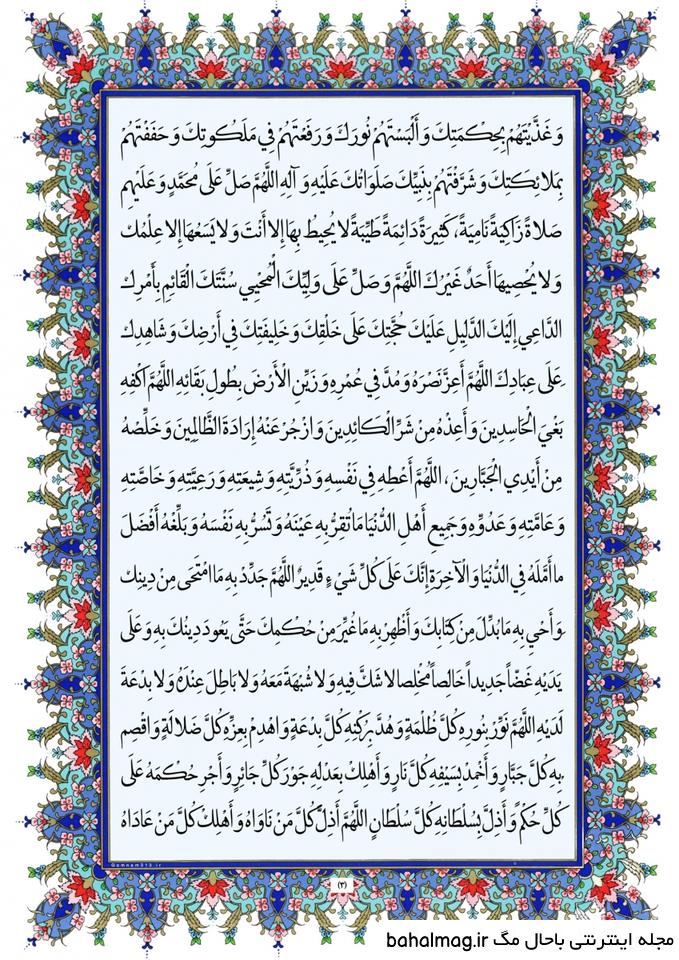 وَ غَذَّيْتَهُمْ بِحِكْمَتِكَ وَ أَلْبَسْتَهُمْ نُورَكَ وَ رَفَعْتَهُمْ فِي مَلَكُوتِكَ وَ حَفَفْتَهُمْ
بِمَلائِكَتِكَ وَ شَرَّفْتَهُمْ بِنَبِيِّكَ صَلَوَاتُكَ عَلَيْهِ وَ آلِهِ اللَّهُمَّ صَلِّ عَلَى مُحَمَّدٍ وَ عَلَيْهِمْ
صَلاةً زَاكِيَةً نَامِيَةً، كَثِيرَةً دَائِمَةً طَيِّبَةً لا يُحِيطُ بِهَا إِلا أَنْتَ وَ لا يَسَعُهَا إِلا عِلْمُكَ
وَ لا يُحْصِيهَا أَحَدٌ غَيْرُكَ اللَّهُمَّ وَ صَلِّ عَلَى وَلِيِّكَ الْمُحْيِي سُنَّتَكَ الْقَائِمِ بِأَمْرِكَ
الدَّاعِي إِلَيْكَ الدَّلِيلِ عَلَيْكَ حُجَّتِكَ عَلَى خَلْقِكَ وَ خَلِيفَتِكَ فِي أَرْضِكَ وَ شَاهِدِكَ
عَلَى عِبَادِكَ اللَّهُمَّ أَعِزَّ نَصْرَهُ وَ مُدَّ فِي عُمْرِهِ وَ زَيِّنِ الْأَرْضَ بِطُولِ بَقَائِهِ اللَّهُمَّ اكْفِهِ
بَغْيَ الْحَاسِدِينَ وَ أَعِذْهُ مِنْ شَرِّ الْكَائِدِينَ وَ ازْجُرْ عَنْهُ إِرَادَةَ الظَّالِمِينَ وَ خَلِّصْهُ
مِنْ أَيْدِي الْجَبَّارِينَ، اللَّهُمَّ أَعْطِهِ فِي نَفْسِهِ وَ ذُرِّيَّتِهِ وَ شِيعَتِهِ وَ رَعِيَّتِهِ وَ خَاصَّتِهِ
وَ عَامَّتِهِ وَ عَدُوِّهِ وَ جَمِيعِ أَهْلِ الدُّنْيَا مَا تُقِرُّ بِهِ عَيْنَهُ وَ تَسُرُّ بِهِ نَفْسَهُ وَ بَلِّغْهُ أَفْضَلَ
ما أَمَّلَهُ فِي الدُّنْيَا وَ الْآخِرَةِ إِنَّكَ عَلَى كُلِّ شَيْءٍ قَدِيرٌ اللَّهُمَّ جَدِّدْ بِهِ مَا امْتَحَى مِنْ دِينِكَ
وَ أَحْيِ بِهِ مَا بُدِّلَ مِنْ كِتَابِكَ وَ أَظْهِرْ بِهِ مَا غُيِّرَ مِنْ حُكْمِكَ حَتَّى يَعُودَ دِينُكَ بِهِ وَ عَلَى
يَدَيْهِ غَضّاً جَدِيداً خَالِصاً مُخْلَصا لا شَكَّ فِيهِ وَ لا شُبْهَةَ مَعَهُ وَ لا بَاطِلَ عِنْدَهُ وَ لا بِدْعَةَ
لَدَيْهِ اللَّهُمَّ نَوِّرْ بِنُورِهِ كُلَّ ظُلْمَةٍ وَ هُدَّ بِرُكْنِهِ كُلَّ بِدْعَةٍ وَ اهْدِمْ بِعِزِّهِ كُلَّ ضَلالَةٍ وَ اقْصِمْ
بِهِ كُلَّ جَبَّارٍ وَ أَخْمِدْ بِسَيْفِهِ كُلَّ نَارٍ وَ أَهْلِكْ بِعَدْلِهِ جَوْرَ كُلِّ جَائِرٍ وَ أَجْرِ حُكْمَهُ عَلَى
كُلِّ حُكْمٍ وَ أَذِلَّ بِسُلْطَانِهِ كُلَّ سُلْطَانٍ اللَّهُمَّ أَذِلَّ كُلَّ مَنْ نَاوَاهُ وَ أَهْلِكْ كُلَّ مَنْ عَادَاهُ
Gomnam313.ir
(٣)
مجله اینترنتی باحال مگ bahalmag.ir